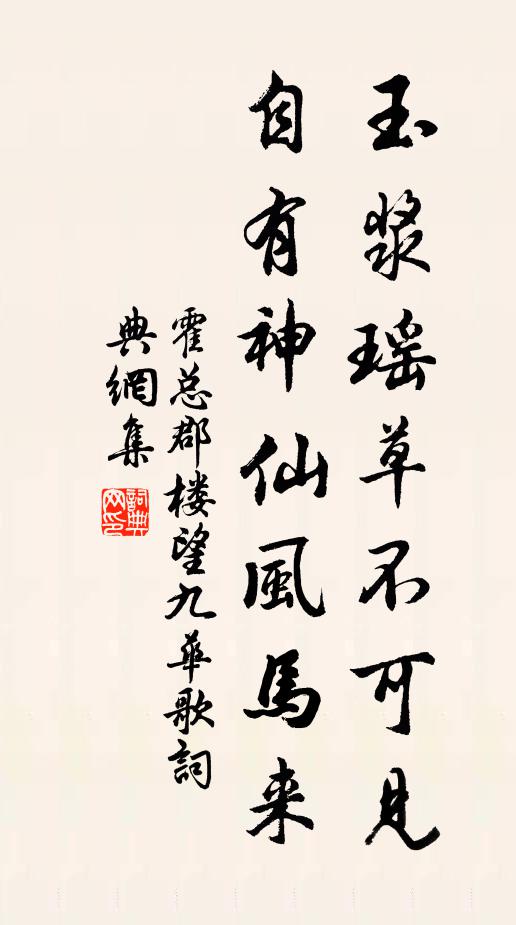 玉浆瑶草不可見
自有神仙風馬来
霍总郡楼望九華歌詞
典網集
詞典网印